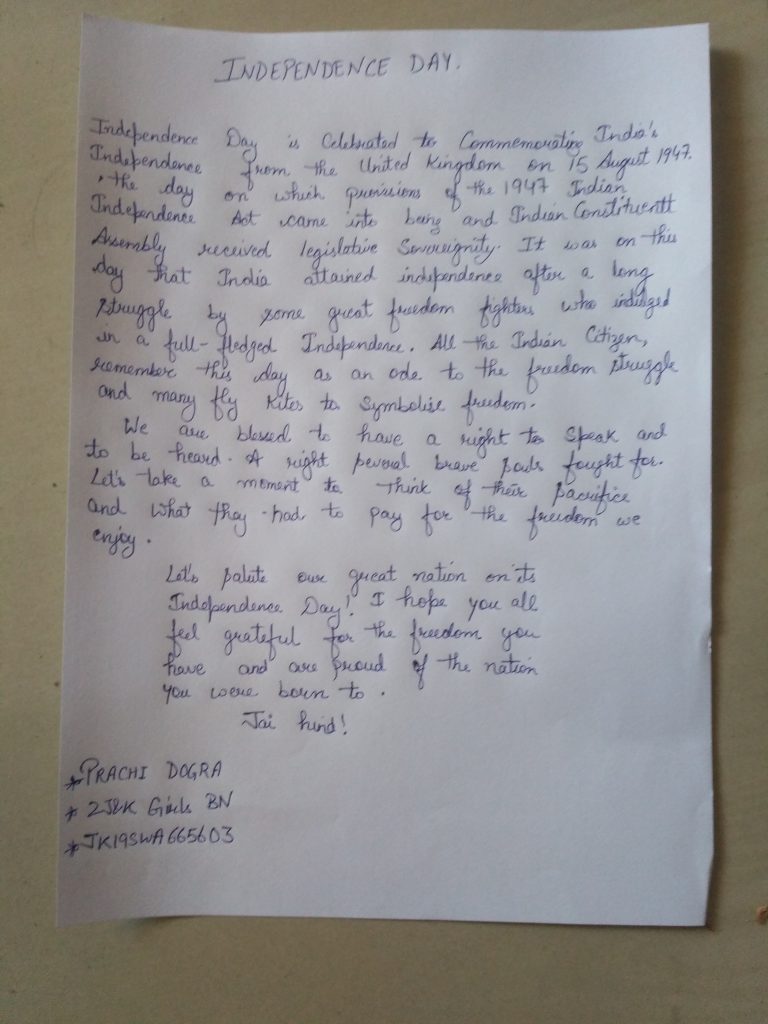 INDEPENDENCE DAY.
Independence Day is Celebrated to Commemorating India's
Independence from the United Kingdom on 15 August 1947.
, the day on which provisions of the 1947 Indian
Independence Act came into being and Indian Constituentt
Assembly received legislative Sovereignity. It was on this
day that India attained independence after a long
struggle by some great freedom fighters who indulged
in a full-fledged Independence. All the Indian Citizen,
remember this day as an ode to the freedom struggle
and many fly kites to Symbolise freedom.
We are blessed to have a right to Speak and
to be heard. A right several brave souls fought for.
Let's take a moment to think of their sacrifice
and what they had to pay for the freedom we
enjoy.
Let's salute our great nation on its
Independence Day! I hope you all
feel grateful for the freedom you
have and are proud of the nation
you were born to.
Jai hind!
* PRACHI DOGRA
* 2J&K Girls BN
* JK19SWA665603